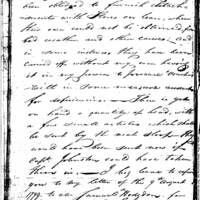 been obliged to furnish detach-
ments with Flour on loan, when
their own could not be obtained for
bad weather and other causes, and
in some instances they have been
carried off without my even having
it in my power to procure
still in some measure account
for deficiencies. — There is yet
on hand a quantity of beef, with
a few small articles which shall
be sent by the next sloop. They
would have been sent now if
Capt. Johnston could have taken
them in. — I beg leave to refer
you to my letter of the 9th August
1799, to Samuel Hodgdon, for